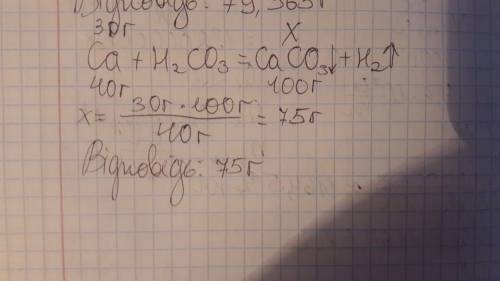 Відповідь: 79,365г
30г X
Ca + H₂CO₃ = CaCO₃↓ + H₂↑
40г 100г
x = 30г · 100г / 40г = 75г
Відповідь: 75г